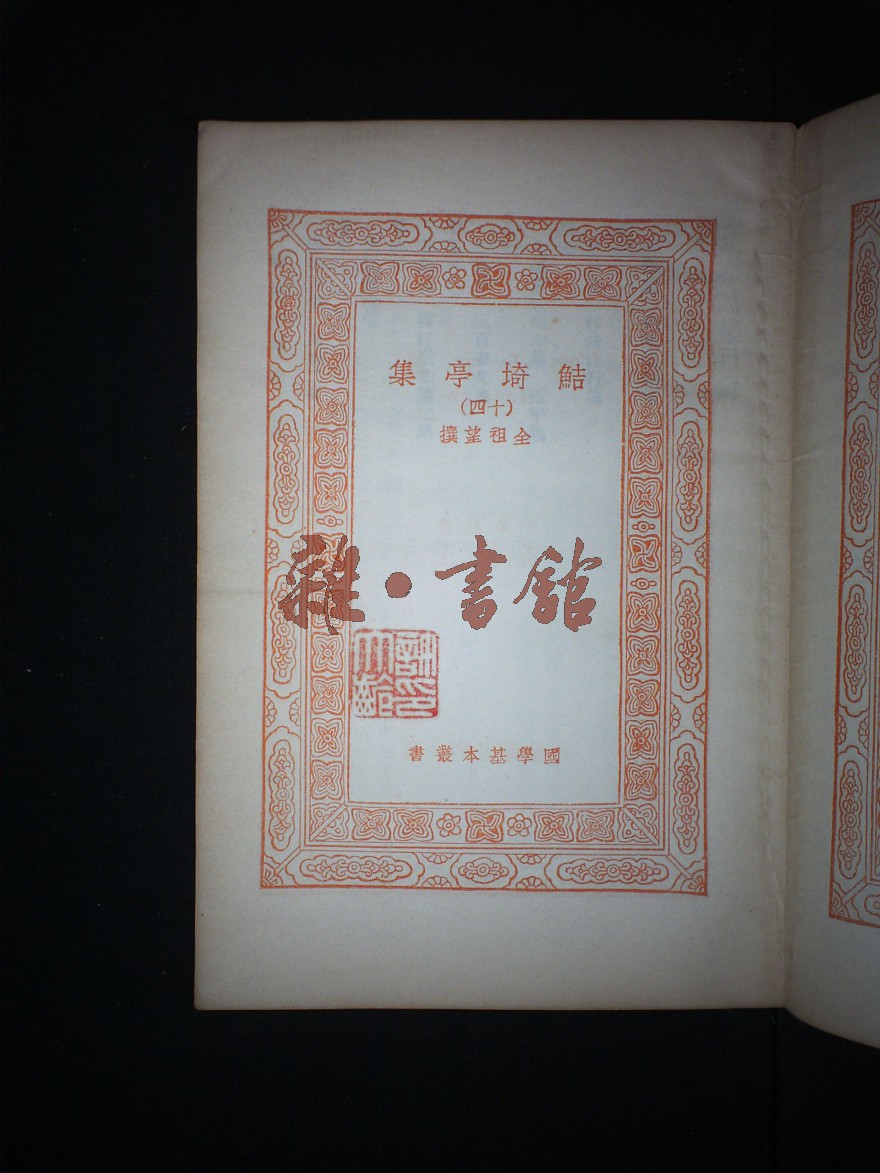 鮚埼亭集
(十四)
全祖望撰
雜·書館
國學基本叢書